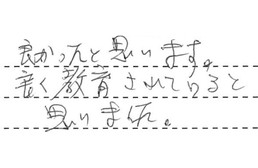 良かったと思います。
良く教育されていると
思いました。